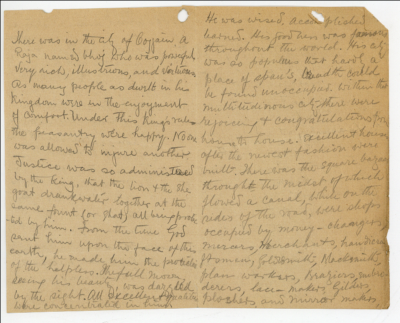 There was in the city of Oojain a
Raja named Bhoj who was powerful
very rich, illustrious, and virtuous
As many people as dwelt in his
Kingdom were in the enjoyment
of comfort. Under this King's rule
the peasantry were happy. No one
was allowed to injure another
Justice was so administered
by the King, that the lion & the
goat drank water together at the
same fount (or ghat) all
by him. From the time God
sent him upon the face of the
earth, he made him the protector
of the helpless. The full moon,
seeing his beauty, was dazzled
by the sight. All excellent qualities
were concentrated in him.
He was wise, accomplished
learned. His goodness was famous
throughout the world. His city
was so populous that hardly a
place of space could
be found unoccupied. Within the
multitudinous city there were
rejoicing & congratulations from
house to house. Excellent houses
after the newest fashion were
built. There was the square bazaar
through the midst of which
flowed a canal, while on the
sides of the road, were shops
occupied by money-changers
Merchants,
Goldsmith, Blacksmith,
plain workers, Braziers, embroi-
derers, lace-makers Gilders,
and mirror makers,